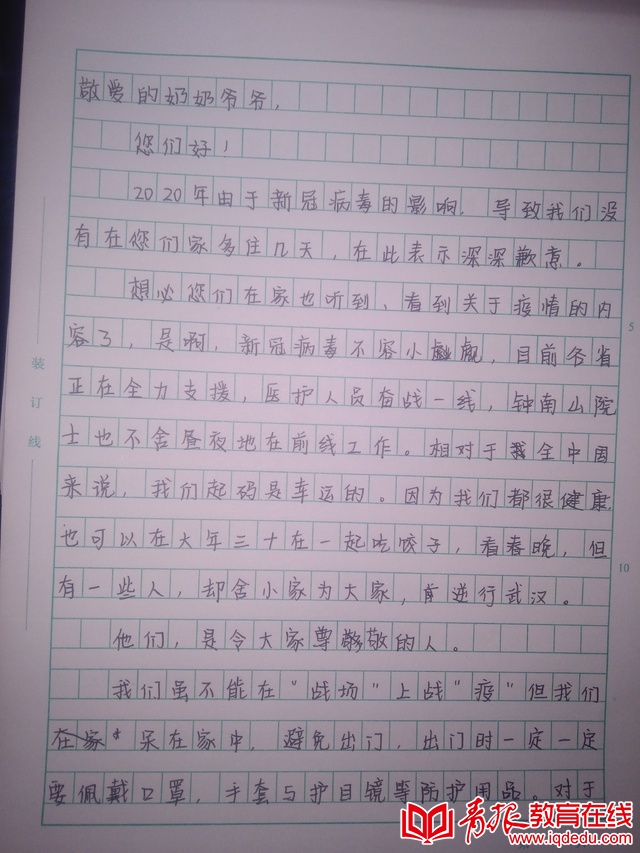 敬爱的奶奶爷爷,
您们好!
2020年由于新冠病毒的影响, 导致我们没
有在您们家多住几天,在此表示深深歉意。
想必您们在家也听到、看到关于疫情的内
容了,是啊,新冠病毒不容小觑,目前各省
正在全力支援,医护人员奋战一线,钟南山院
士也不舍昼夜地在前线工作。相对于全中国
来说,我们起码是幸运的。因为我们都很健康
也可以在大年三十在一起吃饺子,看春晚,但
有一些人,却舍小家为大家,前逆行武汉。
他们,是令大家尊敬的人。
我们虽不能在"战场"上战"疫"但我们
呆在家中,避免出门,出门时一定一定
要佩戴口罩,手套与护目镜等防护用品。对于
装订线
5
10
青报教育在线
www.iqdedu.com